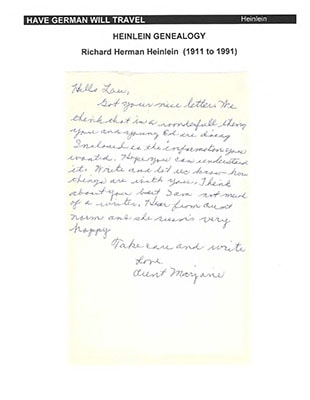 HAVE GERMAN WILL TRAVEL
Heinlein
HEINLEIN GENEALOGY
Richard Herman Heinlein (1911 to 1991)
Hello Lou,
Got your nice letter. We
think that is a wonderfull thing
you and young Ed are doing
Inclosed is the information you
wanted. Hope you can understand
it. Write and let us know how
things are with you. Think
about you but I am not much
of a writer. Hear from Aunt
Norm and she seems very
happy
Take care and write
Love
Aunt Marjorie